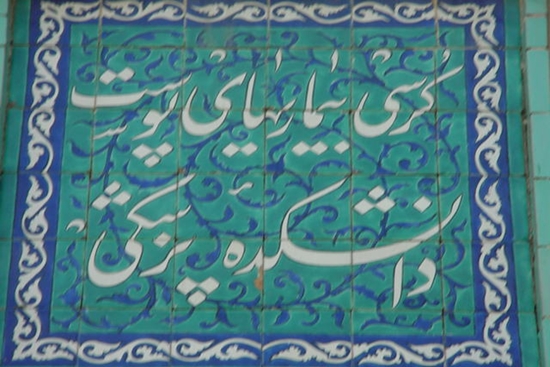 کُرسی بیماریهای پوست
دانشکدهٔ پزشکی